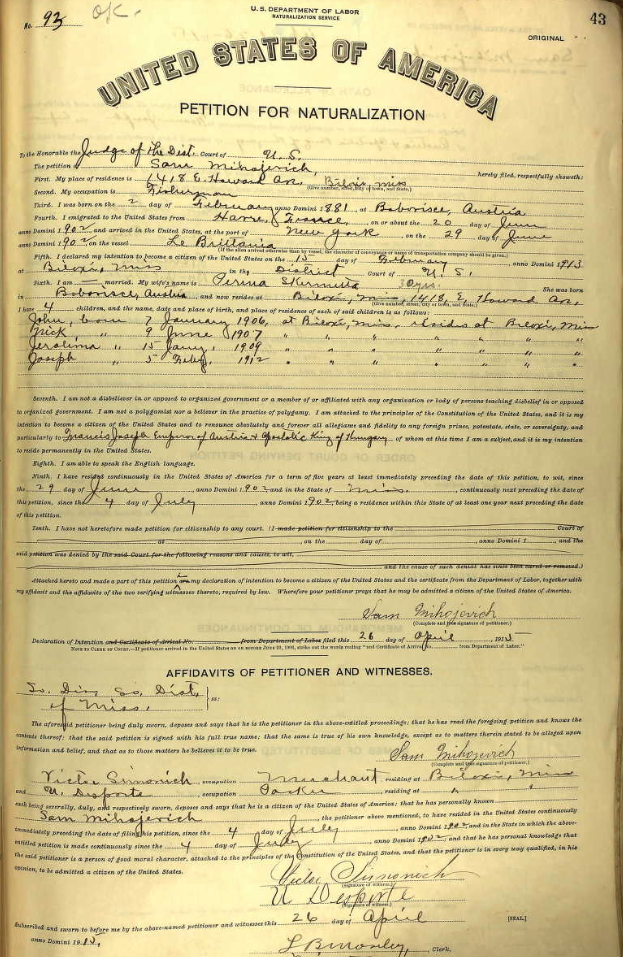 U. S. DEPARTMENT OF LABOR
NATURALIZATION SERVICE
No. 93 OK.
43
ORIGINAL
UNITED STATES OF AMERICA
PETITION FOR NATURALIZATION
To the Honorable the Judge of the Dist. Court of U. S.
The petition of Sam Mihojevich, hereby filed, respectfully showeth:
First. My place of residence is 1418 E. Howard Ave, Biloxi, Miss
(Give number, street, city or town, and State.)
Second. My occupation is Fisherman
Third. I was born on the 2 day of February anno Domini 1881, at Boborisce, Austria
Fourth. I emigrated to the United States from Havre, France, on or about the 20 day of June
anno Domini 1902 and arrived in the United States, at the port of New York on the 29 day of June
anno Domini 1902 on the vessel Le Brittania
(If the alien arrived otherwise than by vessel, the character of conveyance or name of transportation company should be given.)
Fifth. I declared my intention to become a citizen of the United States on the 15 day of February anno Domini 1913
at Biloxi, Miss in the District Court of U. S.
Sixth. I am married. My wife's name is Perina 30 yrs. She was born
in Boborisce, Austria and now resides at Biloxi, Miss, 1418, E. Howard Ave,
(Give number, street, city or town, and State.)
I have 4 children, and the name, date and place of birth, and place of residence of each of said children is as follows:
John, born 7 January 1906, at Biloxi, Miss, resides at Biloxi, Miss
Nick, " 9 June 1907 " " " " " "
Jerolima " 15 Jany, 1909 " " " " " "
Joseph " 5 Feby, 1912 " " " " " "
Seventh. I am not a disbeliever in or opposed to organized government or a member of or affiliated with any organization or body of persons teaching disbelief in or opposed
to organized government. I am not a polygamist nor a believer in the practice of polygamy. I am attached to the principles of the Constitution of the United States, and it is my
intention to become a citizen of the United States and to renounce absolutely and forever all allegiance and fidelity to any foreign prince, potentate, state, or sovereignty, and
particularly to Francis Joseph Emperor of Austria & Apostolic King of Hungary, of whom at this time I am a subject, and it is my intention
to reside permanently in the United States.
Eighth. I am able to speak the English language.
Ninth. I have resided continuously in the United States of America for a term of five years at least immediately preceding the date of this petition, to wit, since
the 29 day of June, anno Domini 1902 and in the State of Miss. continuously next preceding the date of
this petition, since the 4 day of July anno Domini 1902, being a residence within this State of at least one year next preceding the date
of this petition.
Tenth. I have not heretofore made petition for citizenship to any court. (I made petition for citizenship to the Court of
at on the day of, anno Domini 1, and the
said petition was denied by the said Court for the following reasons and causes, to wit,
and the cause of such denial has since been cured or removed.)
Attached hereto and made a part of this petition are my declaration of intention to become a citizen of the United States and the certificate from the Department of Labor, together with
my affidavit and the affidavits of the two verifying witnesses thereto, required by law. Wherefore your petitioner prays that he may be admitted a citizen of the United States of America.
Sam Mihojevich
(Complete and true signature of petitioner.)
Declaration of Intention and Certificate of Arrival No. from Department of Labor filed this 26 day of April, 1915
AFFIDAVITS OF PETITIONER AND WITNESSES.
So. Div. So. Dist.
of Miss. ss:
The aforesaid petitioner being duly sworn, deposes and says that he is the petitioner in the above-entitled proceedings; that he has read the foregoing petition and knows the
contents thereof; that the said petition is signed with his full true name; that the same is true of his own knowledge, except as to matters therein stated to be alleged upon
information and belief, and that as to those matters he believes it to be true.
Sam Mihojevich
(Complete and true signature of petitioner.)
Victor Simonich, occupation Merchant, residing at Biloxi, Miss
and U. Desporte, occupation Packer, residing at " "
each being severally, duly, and respectively sworn, deposes and says that he is a citizen of the United States of America; that he has personally known
Sam Mihojevich, the petitioner above mentioned, to have resided in the United States continuously
immediately preceding the date of filing this petition, since the 4 day of July, anno Domini 1902, and in the State in which the above-
entitled petition is made continuously since the 4 day of July anno Domini 1902, and that he has personal knowledge that
the said petitioner is a person of good moral character, attached to the principles of the Constitution of the United States, and that the petitioner is in every way qualified, in his
opinion, to be admitted a citizen of the United States.
Victor Simonich
(Signature of witness.)
U Desporte
(Signature of witness.)
Subscribed and sworn to before me by the above-named petitioner and witnesses this 26 day of April [SEAL]
anno Domini 1915.
Clerk.